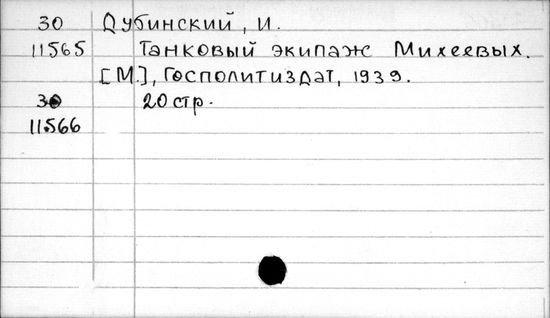 30 Дубинский, И.
11565 Танковый экипаж Михеевых.
[М.], Госполитиздат, 1939.
30 20 стр.
11566